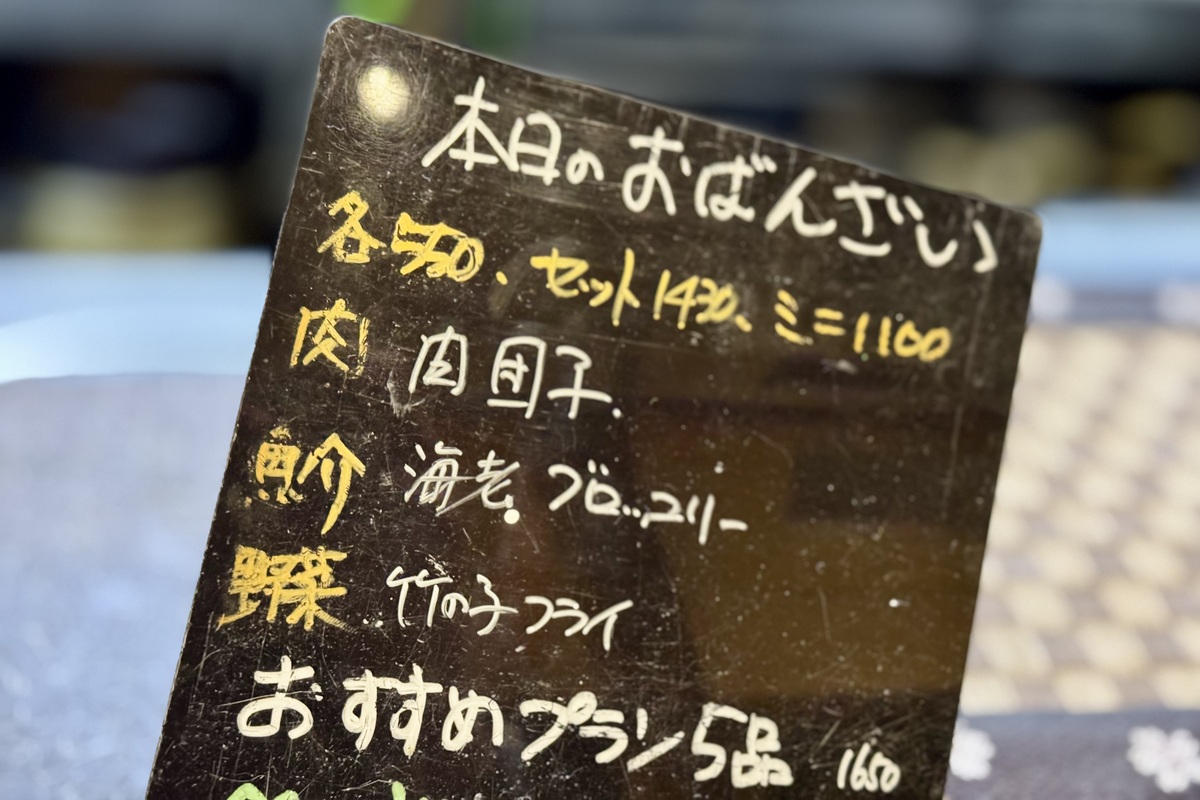 本日のおばんざい
各550、セット1430、ミニ1100
肉 肉団子
魚介 海老 ブロッコリー
野菜 竹の子フライ
おすすめプラン5品 1650